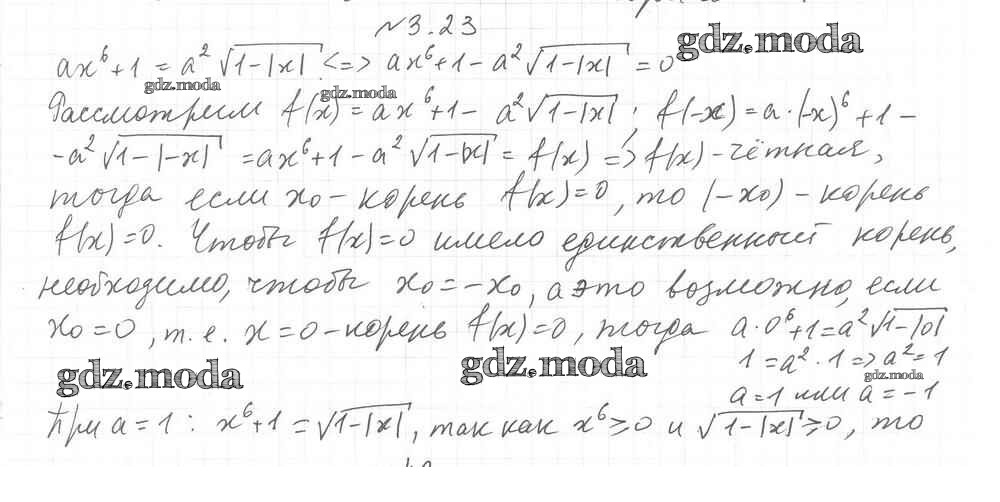 №3.23
gdz.moda
ax⁶+1 = a² √(1-|x|) <=> ax⁶+1- a² √(1-|x|) = 0
gdz.moda
gdz.moda
Рассмотрим f(x) = ax⁶+1- a² √(1-|x|) ; f(-x) = a·(-x)⁶+1-
-a² √(1-|-x|) = ax⁶+1-a² √(1-|x|) = f(x) => f(x) - чётная,
тогда если x₀ - корень f(x)=0, то (-x₀) - корень
f(x)=0. Чтобы f(x)=0 имело единственный корень,
необходимо, чтобы x₀=-x₀, а это возможно, если
x₀=0, т.е. x=0 - корень f(x)=0, тогда a·0⁶+1=a²√(1-|0|)
1=a²·1 => a²=1
gdz.moda
gdz.moda
gdz.moda
a=1 или a=-1
При a=1: x⁶+1=√(1-|x|), так как x⁶≥0 и √(1-|x|)≥0, то